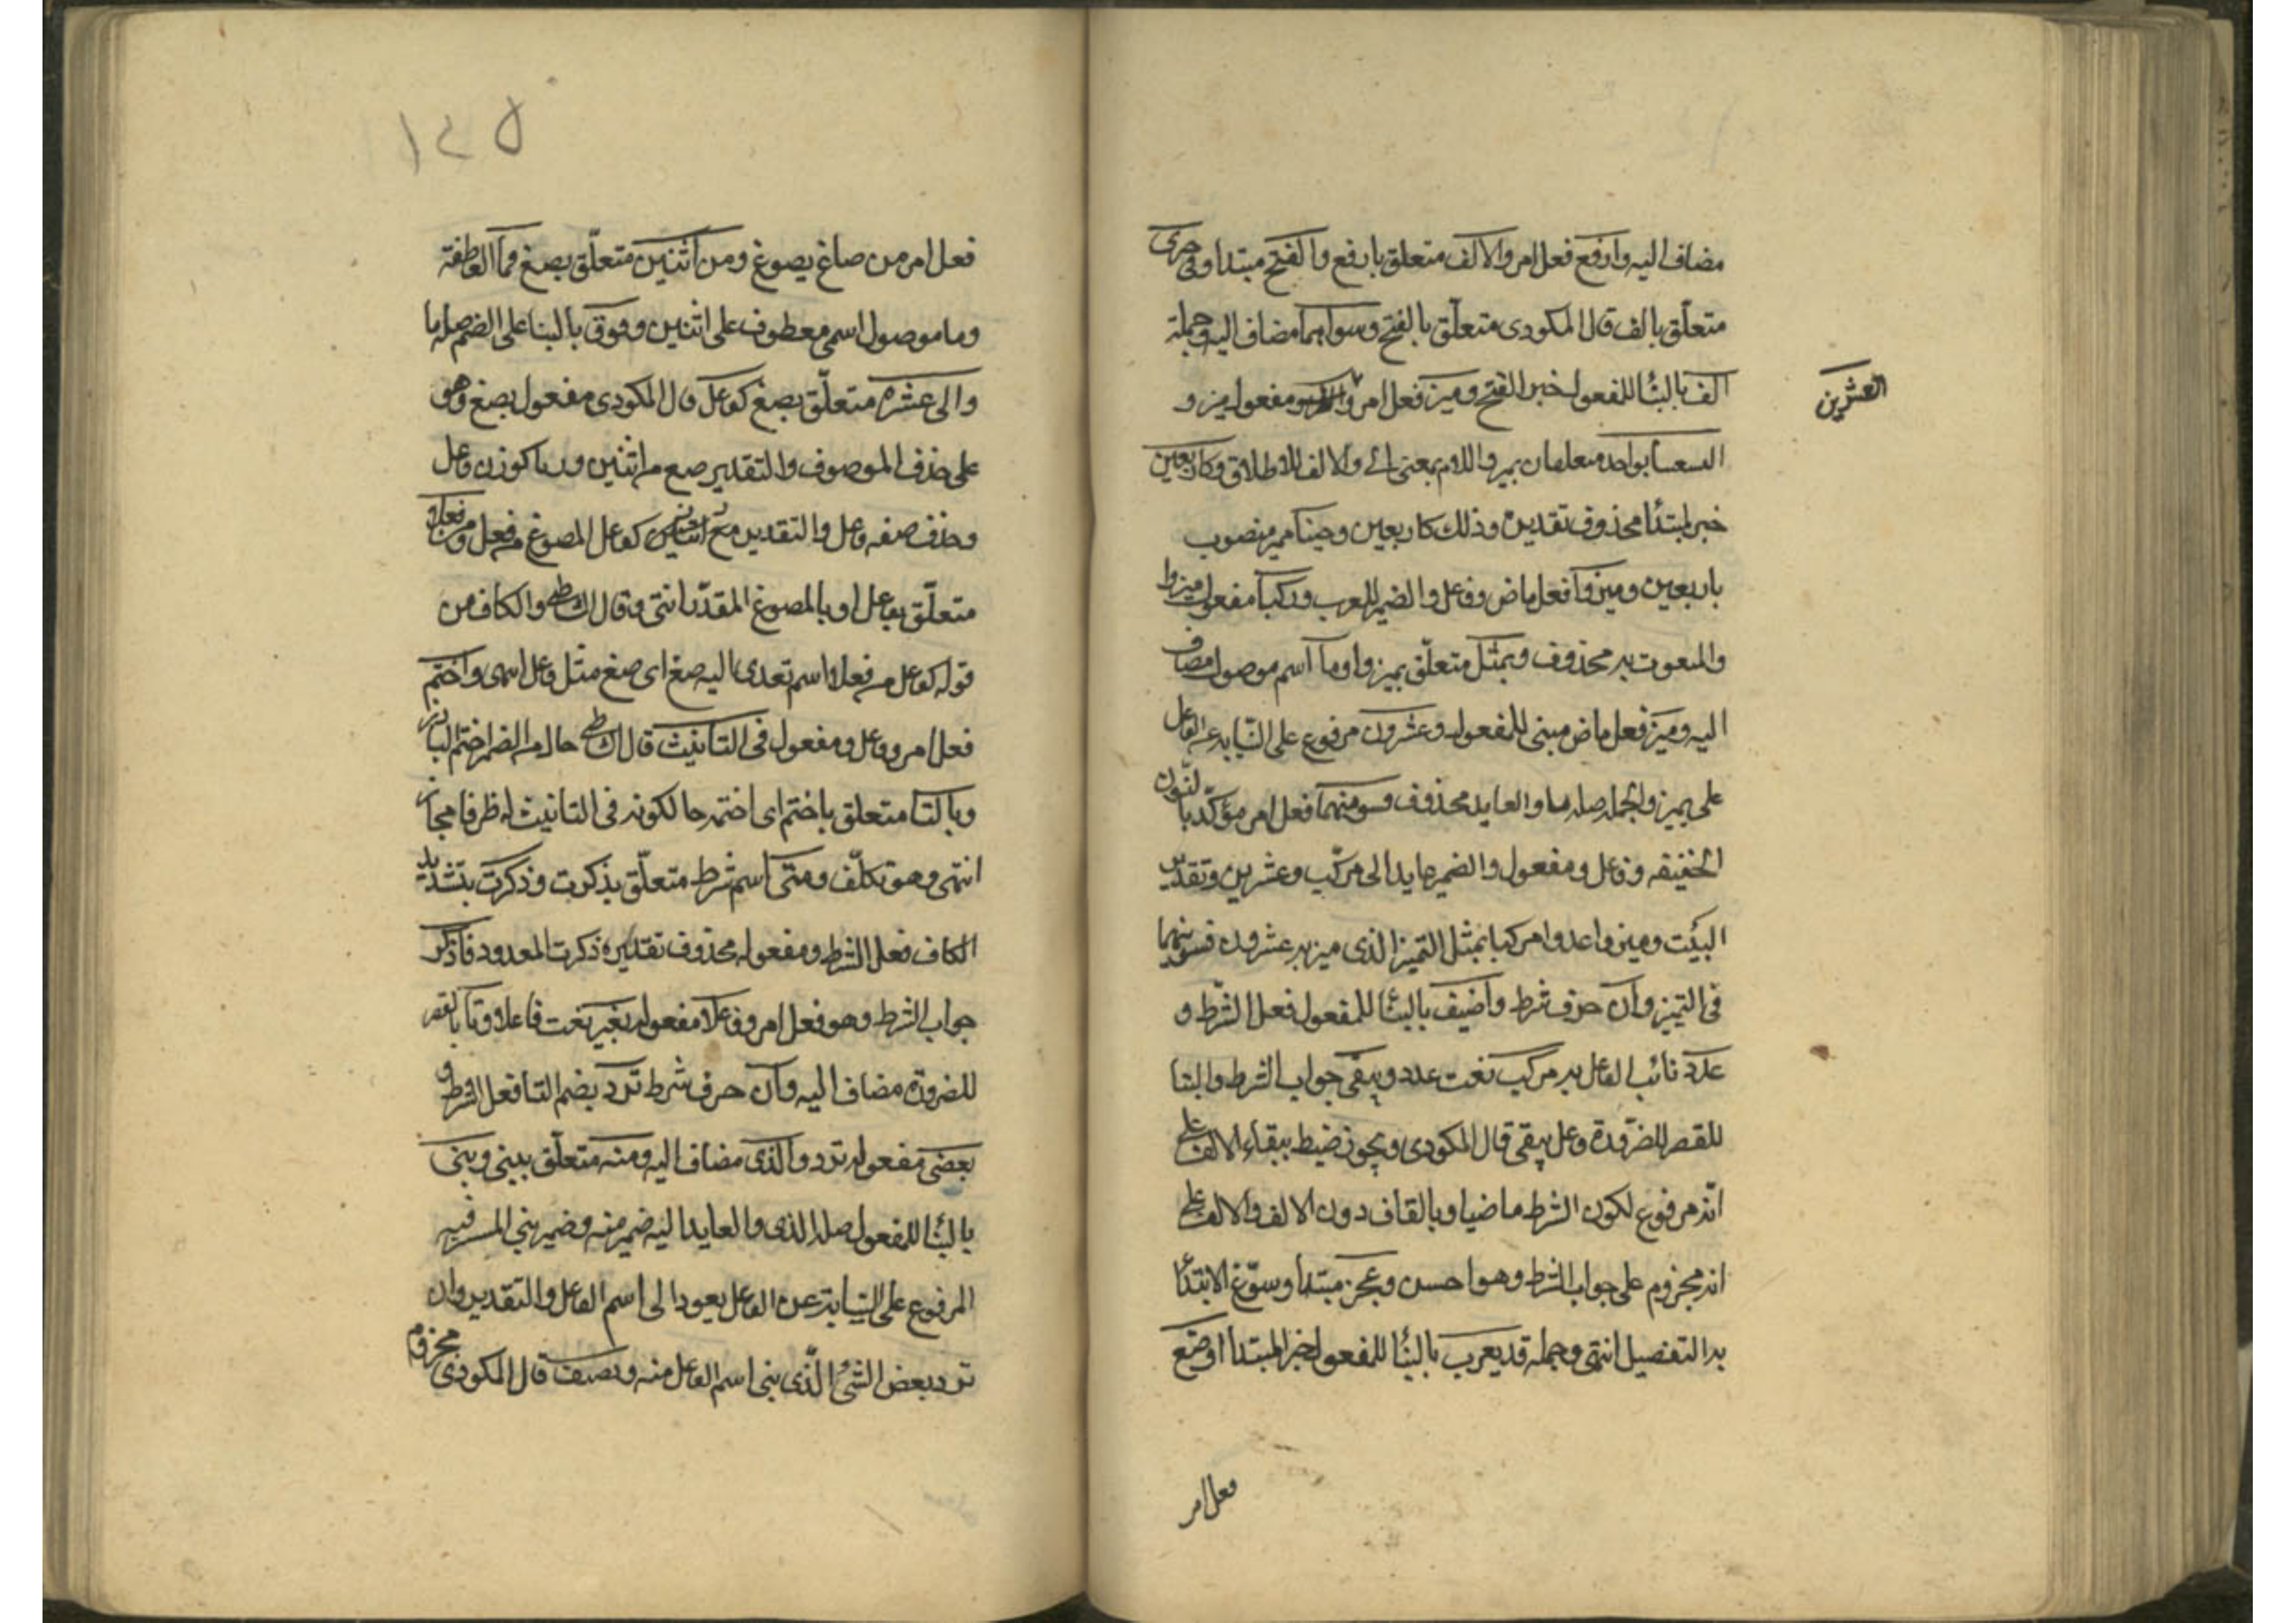 مضاف اليه وارفع فعل امر والالف متعلق بارفع والفتح مبتدا وفي جزئى
متعلّق بالف قال المكودى متعلّق بالفتح وسواهما مضاف اليه وجملة
الف بالبنا للمفعول خبر الفتح وميز فعل امر و مفعول ميز و
العشرين
بواحد متعلقان بميز واللام بمعنى الى والالف للاطلاق وكاربعين
خبر لمبتدأ محذوف تقديره وذلك كاربعين وحينا مميز منصوب
باربعين وميزوا فعل ماض وفاعل والضمير للعرب ومركبا مفعول ميزوا
والمنعوت به محذوف وبمثل متعلّق بميزوا وما اسم موصول مضاف
اليه وميز فعل ماض مبنى للمفعول وعشرون مرفوع على النيابه عن الفاعل
على بميز والجمله صله ما والعايد محذوف وسوينهما فعل امر مؤكّد بالنّون
الخفيفه وفاعل ومفعول والضمير عايد الى مركّب وعشرين وتقدير
البيت وميزوا عددا مركبا بمثل التميز الذى ميز به عشرون فسوينهما
فى التميز وان حرف شرط واضيف بالبنا للمفعول فعل الشّرط و
عدد نائب الفاعل به مركب نعت عدد ويبقى جواب الشرط والبنا
للقصر للضرورة وعل يبقى قال المكودى ويجوز ضبط ببقاء الالف على
انّه مرفوع لكون الشرط ماضيا وبالقاف دون الالف والالف على
انه مجزوم على جواب الشرط وهو احسن وعجز مبتدا وسوّغ الابتدأ
به التفصيل انتهى وجمله قد يعرب بالبنا للمفعول خبر المبتدا اوضع
فعل امر
١٤٥
فعل امر من صاغ يصوغ ومن اثنين متعلّق بصغ فما العاطفة
وما موصول اسمى معطوف على اثنين وفوق بالبنا على الضم صله ما
والى عشره متعلّق بصغ كفاعل قال المكودى مفعول بصغ وهو
على حذف الموصوف والتقدير صغ من اثنين وزنا كوزن فاعل
وحذف صفه فاعل والتقدير صغ من اثنين كفاعل المصوغ من فعل ومن فعلا
متعلّق بفاعل او بالمصوغ المقدّر انتهى وقال الشاطبى والكاف من
قوله كفاعل من فعلا اسم تعدى اليه صغ اى صغ مثل فاعل اسمى واختم
فعل امر وفاعل ومفعول فى التانيث قال الشاطبى حال من الضمير اختمه
وبالتا متعلق باختم اى اختمه حال كونه فى التانيث اى ظرفا مجاز
انتهى وهو تكلّف ومتى اسم شرط متعلّق بذكرت وذكرت بتشديد
الكاف فعل الشرط ومفعوله محذوف تقديره ذكرت المعدود فاذكر
جواب الشرط وهو فعل امر وفاعلا مفعوله بغير نعت فاعلا وتا بالقصر
للضرورة مضاف اليه وان حرف شرط ترد بضم التا فعل الشرط و
بعض مفعول ترد والذى مضاف اليه ومنه متعلّق ببنى وبنى
بالبنا للمفعول صله الذى والعايد اليه ضمير منه وضمير بنى المستتر فيه
المرفوع على النيابة عن الفاعل يعود الى اسم الفاعل والتقدير وان
ترد بعض الشئ الّذى بنى اسم الفاعل منه وتضف قال المكودى مجزوم